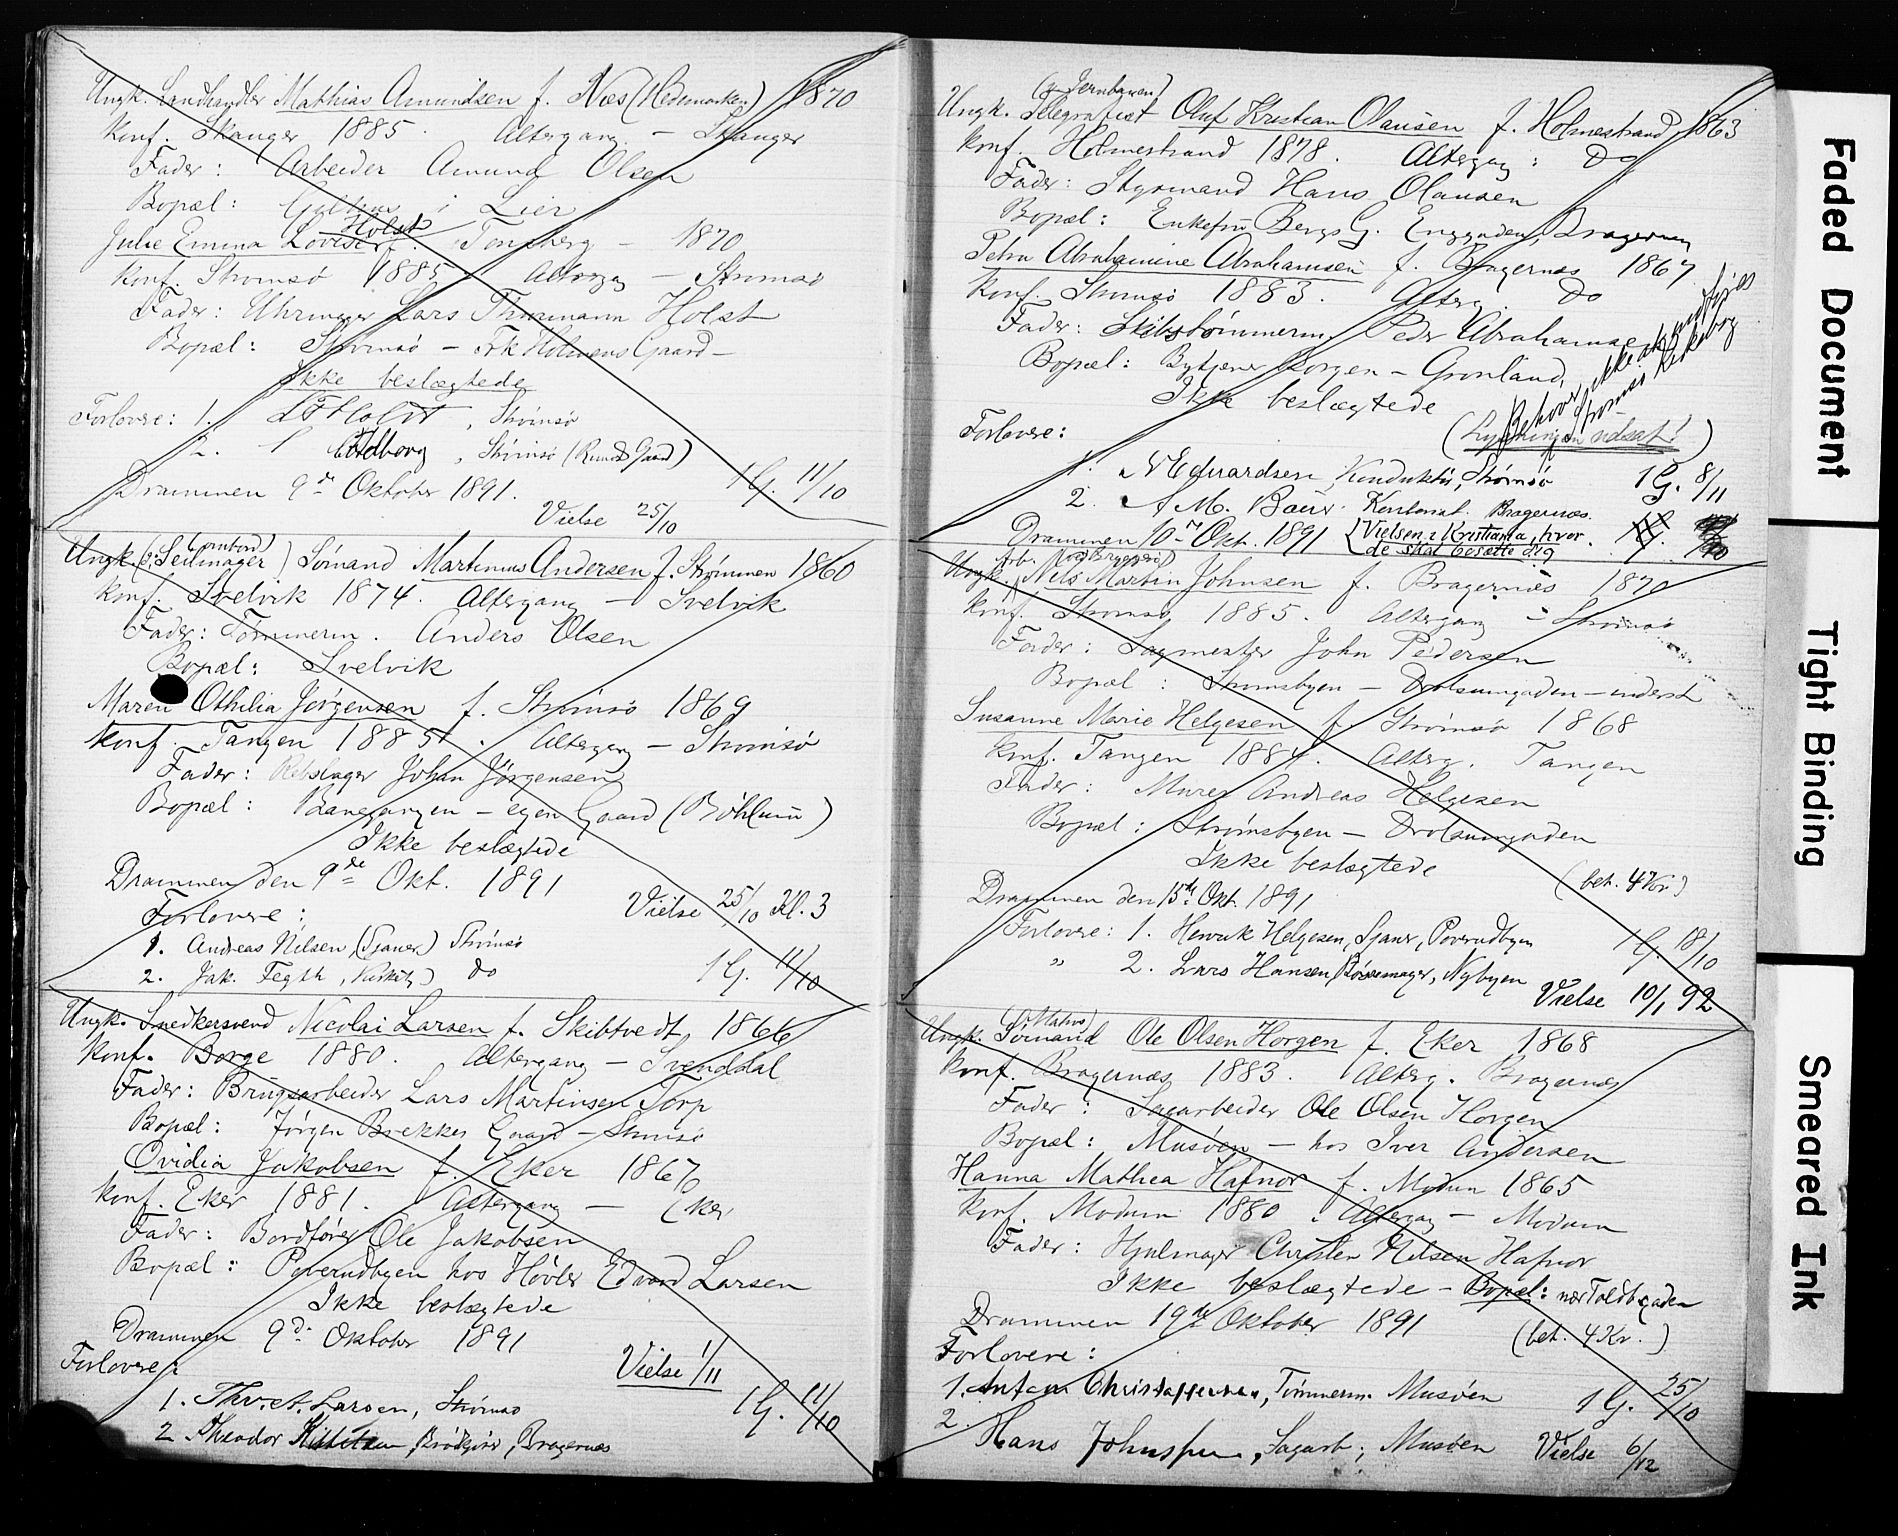 Ungk. Landhandler Mathias Amundsen f. Næs (Hedemarken) 1870
Konf. Skauger 1885. Altergang - Skauger
Fader: Arbeider Amund Olsen
Bopæl: i Lier
Julie Emma Lovise Holst f. Tønsberg - 1870
Konf. Strømsø 1885 Altergang - Strømsø
Fader: Uhrmager Lars Thormann Holst
Bopæl: Strømsø - Frk Holmens Gaard -
Ikke beslægtede
Forlovere: 1. L T Holst, Strømsø
2. Goldborg, Strømsø (Gaard)
Drammen 9de Oktober 1891. 1 G. 11/10
Vielse 25/10
Ungk. (Seilmager) Sømand Martinius Andersen f. Strømmen 1860
Konf. Svelvik 1874. Altergang - Svelvik
Fader: Tømmerm. Anders Olsen
Bopæl: Svelvik
Maren Othilia Jørgensen f. Strømsø 1869
Konf. Tangen 1885. Altergang - Strømsø
Fader: Rebslager Johan Jørgensen
Bopæl: - egen Gaard
Ikke beslægtede
Drammen den 9de Okt. 1891
Vielse 25/10 Kl. 3
Forlovere:
1. Andreas Nilsen, (Sjauer) Strømsø
2. Jak. Fegth, do 1 G. 11/10
Ungk. Snedkersvend Nicolai Larsen f. Skibtvedt, 1866
Konf. Borge 1880. Altergang - Svenddal
Fader: Brugsarbeider Lars Martinsen Torp
Bopæl: Jørgen Brekkes Gaard - Strømsø
Ovidia Jakobsen f. Eker 1867
Konf. Eker 1881. Altergang - Eker
Fader: Bordfører Ole Jakobsen
Bopæl: Poverudbyen hos Høvler Edvard Larsen
Ikke beslægtede
Drammen 9de Oktober 1891
Vielse 1/11
Forlovere:
1. Thv. A. Larsen, Strømsø 1 G. 11/10
2 Theodor, Bragernæs
(v. Jernbanen)
Ungk. Telegrafist Oluf Kristian Olausen f. Holmestrand 1863
Konf. Holmestrand 1878. Altergang: Do
Fader: Styrmand Hans Olausen
Bopæl: Enkefru Bergs G. Enggaden, Bragernæs
Petra Abrahamine Abrahamsen f. Bragernæs 1867
Konf. Strømsø 1883. Alterg. Do
Fader: Skibstømmerm. Peder Abrahamsen
Bopæl: Bytjener Borgen - Grønland.
Ikke beslægtede
Behøver ikke at
Strømsø Kirkeborg
Forlovere: (Lysningen udsat!)
1. N Edvardsen, Konduktør, Strømsø 1 G. 8/11
2. A M. Bauer Kontorist. Bragernæs.
Drammen 10de Okt. 1891 (Vielsen i Kristiania, hvor de skal besætte dig
Arb.
Ungk. Nils Martin Johnsen f. Bragernæs 1870
Konf. Strømsø 1885. Altergang - Strømsø
Fader: Sagmester John Pedersen
Bopæl: Strømsbyen - Drolsumgaden - inderst
Susanne Marie Helgesen f. Strømsø 1868
Konf. Tangen 1884. Alterg. Tangen
Fader: Murer Andreas Helgesen
Bopæl: Strømsbyen - Drolsumgaden
Ikke beslægtede
(bet. 4 Kr)
Drammen den 15de Okt. 1891
Forlovere: 1. Henrik Helgesen, Sjauer, Poverudbyen 1 G. 18/10
" 2. Lars Hansen, Bøssemager, Nybyen
Vielse 10/1 92
Ungk. Sømand Ole Olsen Horgen f. Eker 1868
Konf. Bragernæs 1883. Alterg. Bragernæs
Fader: Sagarbeider Ole Olsen Horgen
Bopæl: Musøen - hos Iver Andersen
Hanna Mathea Hafnor f. Modum 1865
Konf. Modum 1880. Altergang - Modum
Fader: Hjulmager Christen Nilsen Hafnor
Ikke beslægtede - Bopæl: nær Toldbgaden
Drammen 19de Oktober 1891 (bet. 4 Kr.)
Forlovere:
1. Anton Christoffersen, Tømmerm. Musøen 1 G. 25/10
2. Hans Johnsen, Sagarb., Musøen Vielse 6/12
Faded Document
Tight Binding
Smeared Ink